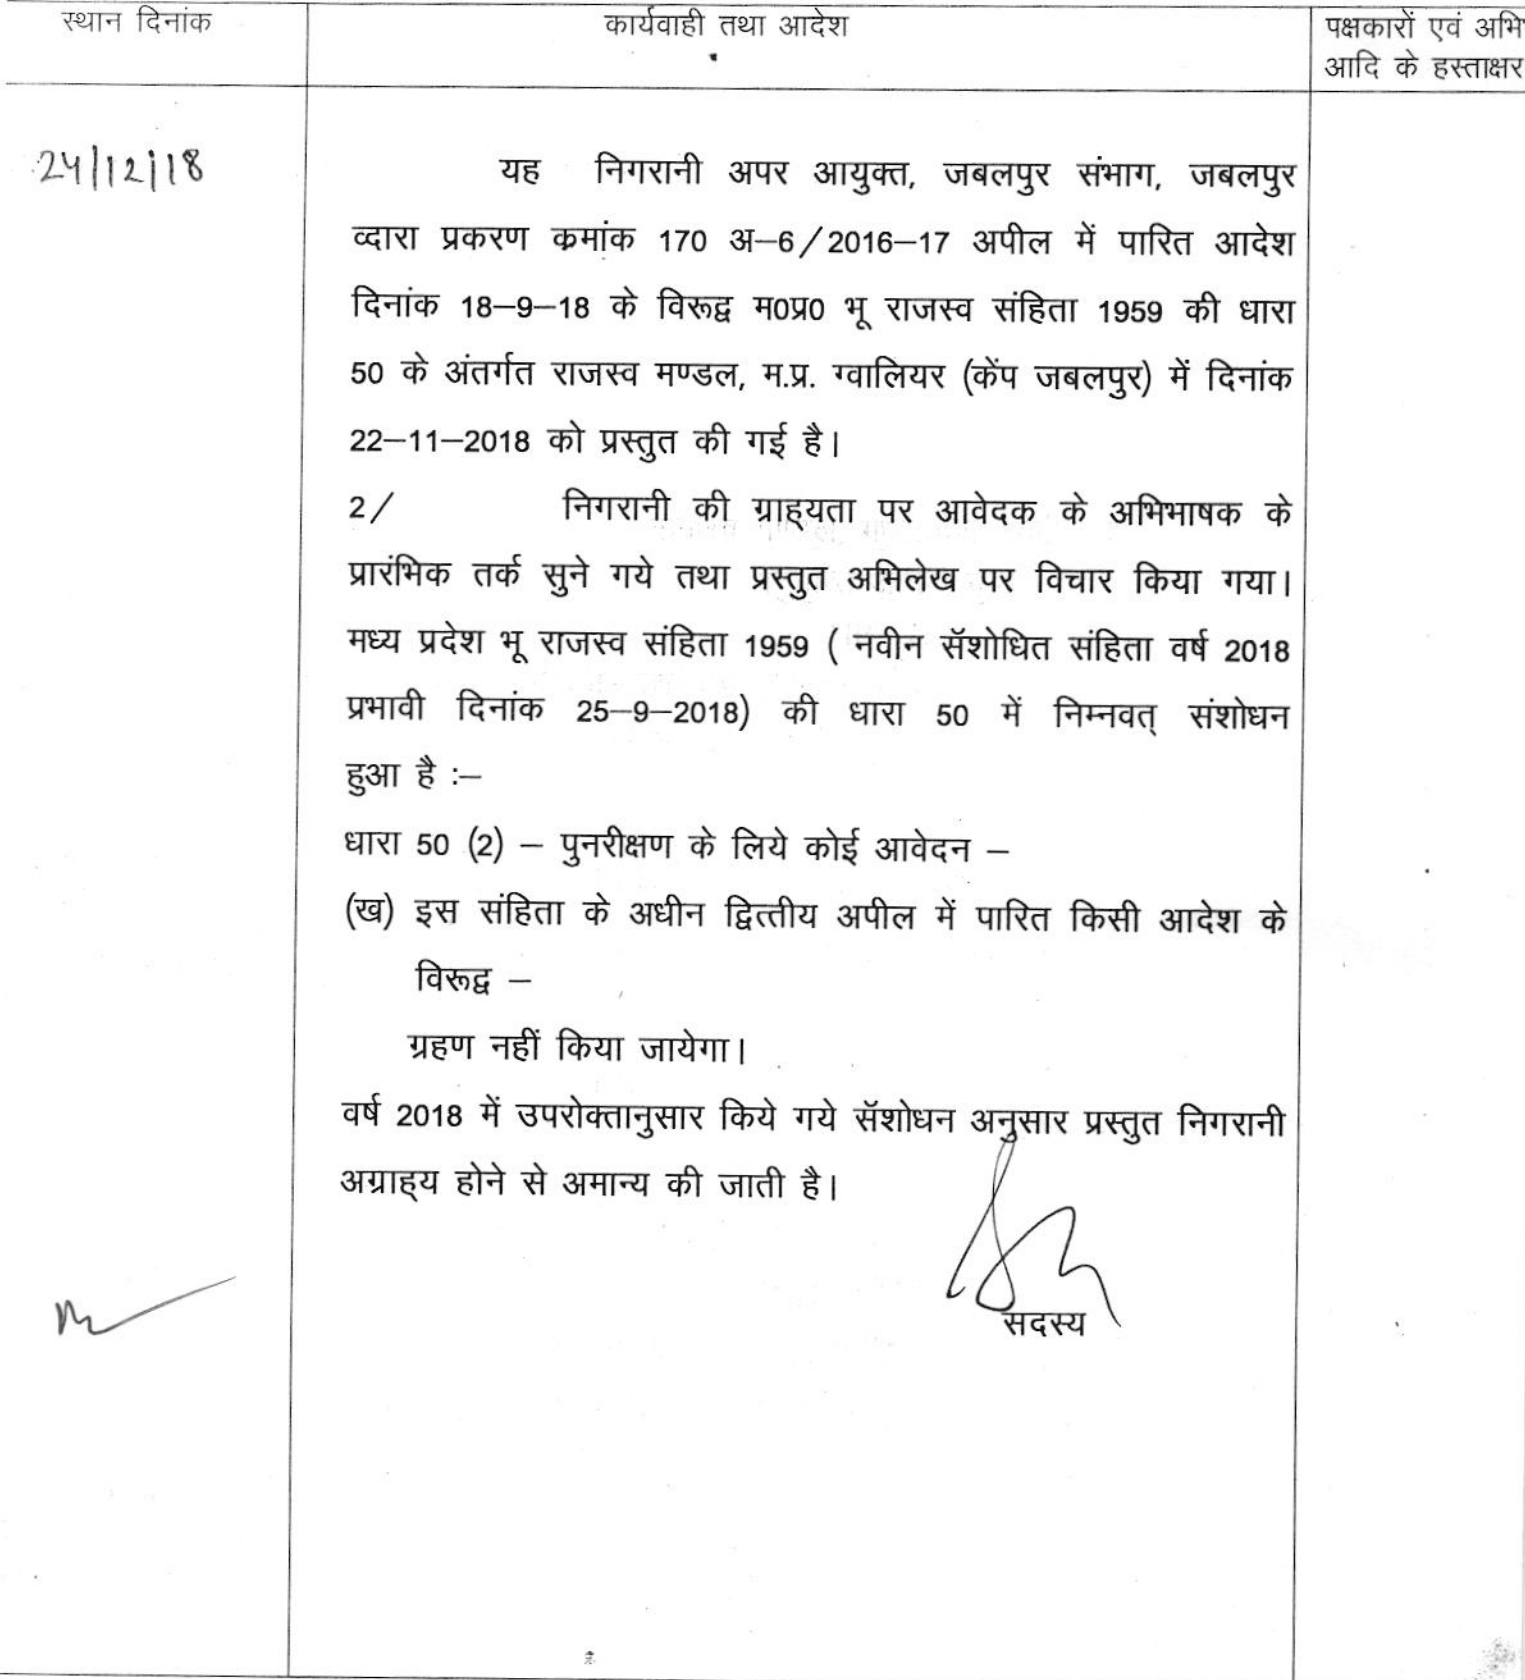 स्थान दिनांक
कार्यवाही तथा आदेश
पक्षकारों एवं अभि
आदि के हस्ताक्षर
24/12/18
यह निगरानी अपर आयुक्त, जबलपुर संभाग, जबलपुर
व्दारा प्रकरण क्रमांक 170 अ–6/2016–17 अपील में पारित आदेश
दिनांक 18–9–18 के विरूद्व म0प्र0 भू राजस्व संहिता 1959 की धारा
50 के अंतर्गत राजस्व मण्डल, म.प्र. ग्वालियर (केंप जबलपुर) में दिनांक
22–11–2018 को प्रस्तुत की गई है।
2/ निगरानी की ग्राह्यता पर आवेदक के अभिभाषक के
प्रारंभिक तर्क सुने गये तथा प्रस्तुत अभिलेख पर विचार किया गया।
मध्य प्रदेश भू राजस्व संहिता 1959 ( नवीन सॅशोधित संहिता वर्ष 2018
प्रभावी दिनांक 25–9–2018) की धारा 50 में निम्नवत् संशोधन
हुआ है :–
धारा 50 (2) – पुनरीक्षण के लिये कोई आवेदन –
(ख) इस संहिता के अधीन द्वित्तीय अपील में पारित किसी आदेश के
विरूद्व –
ग्रहण नहीं किया जायेगा।
वर्ष 2018 में उपरोक्तानुसार किये गये सॅशोधन अनुसार प्रस्तुत निगरानी
अग्राह्य होने से अमान्य की जाती है।
सदस्य